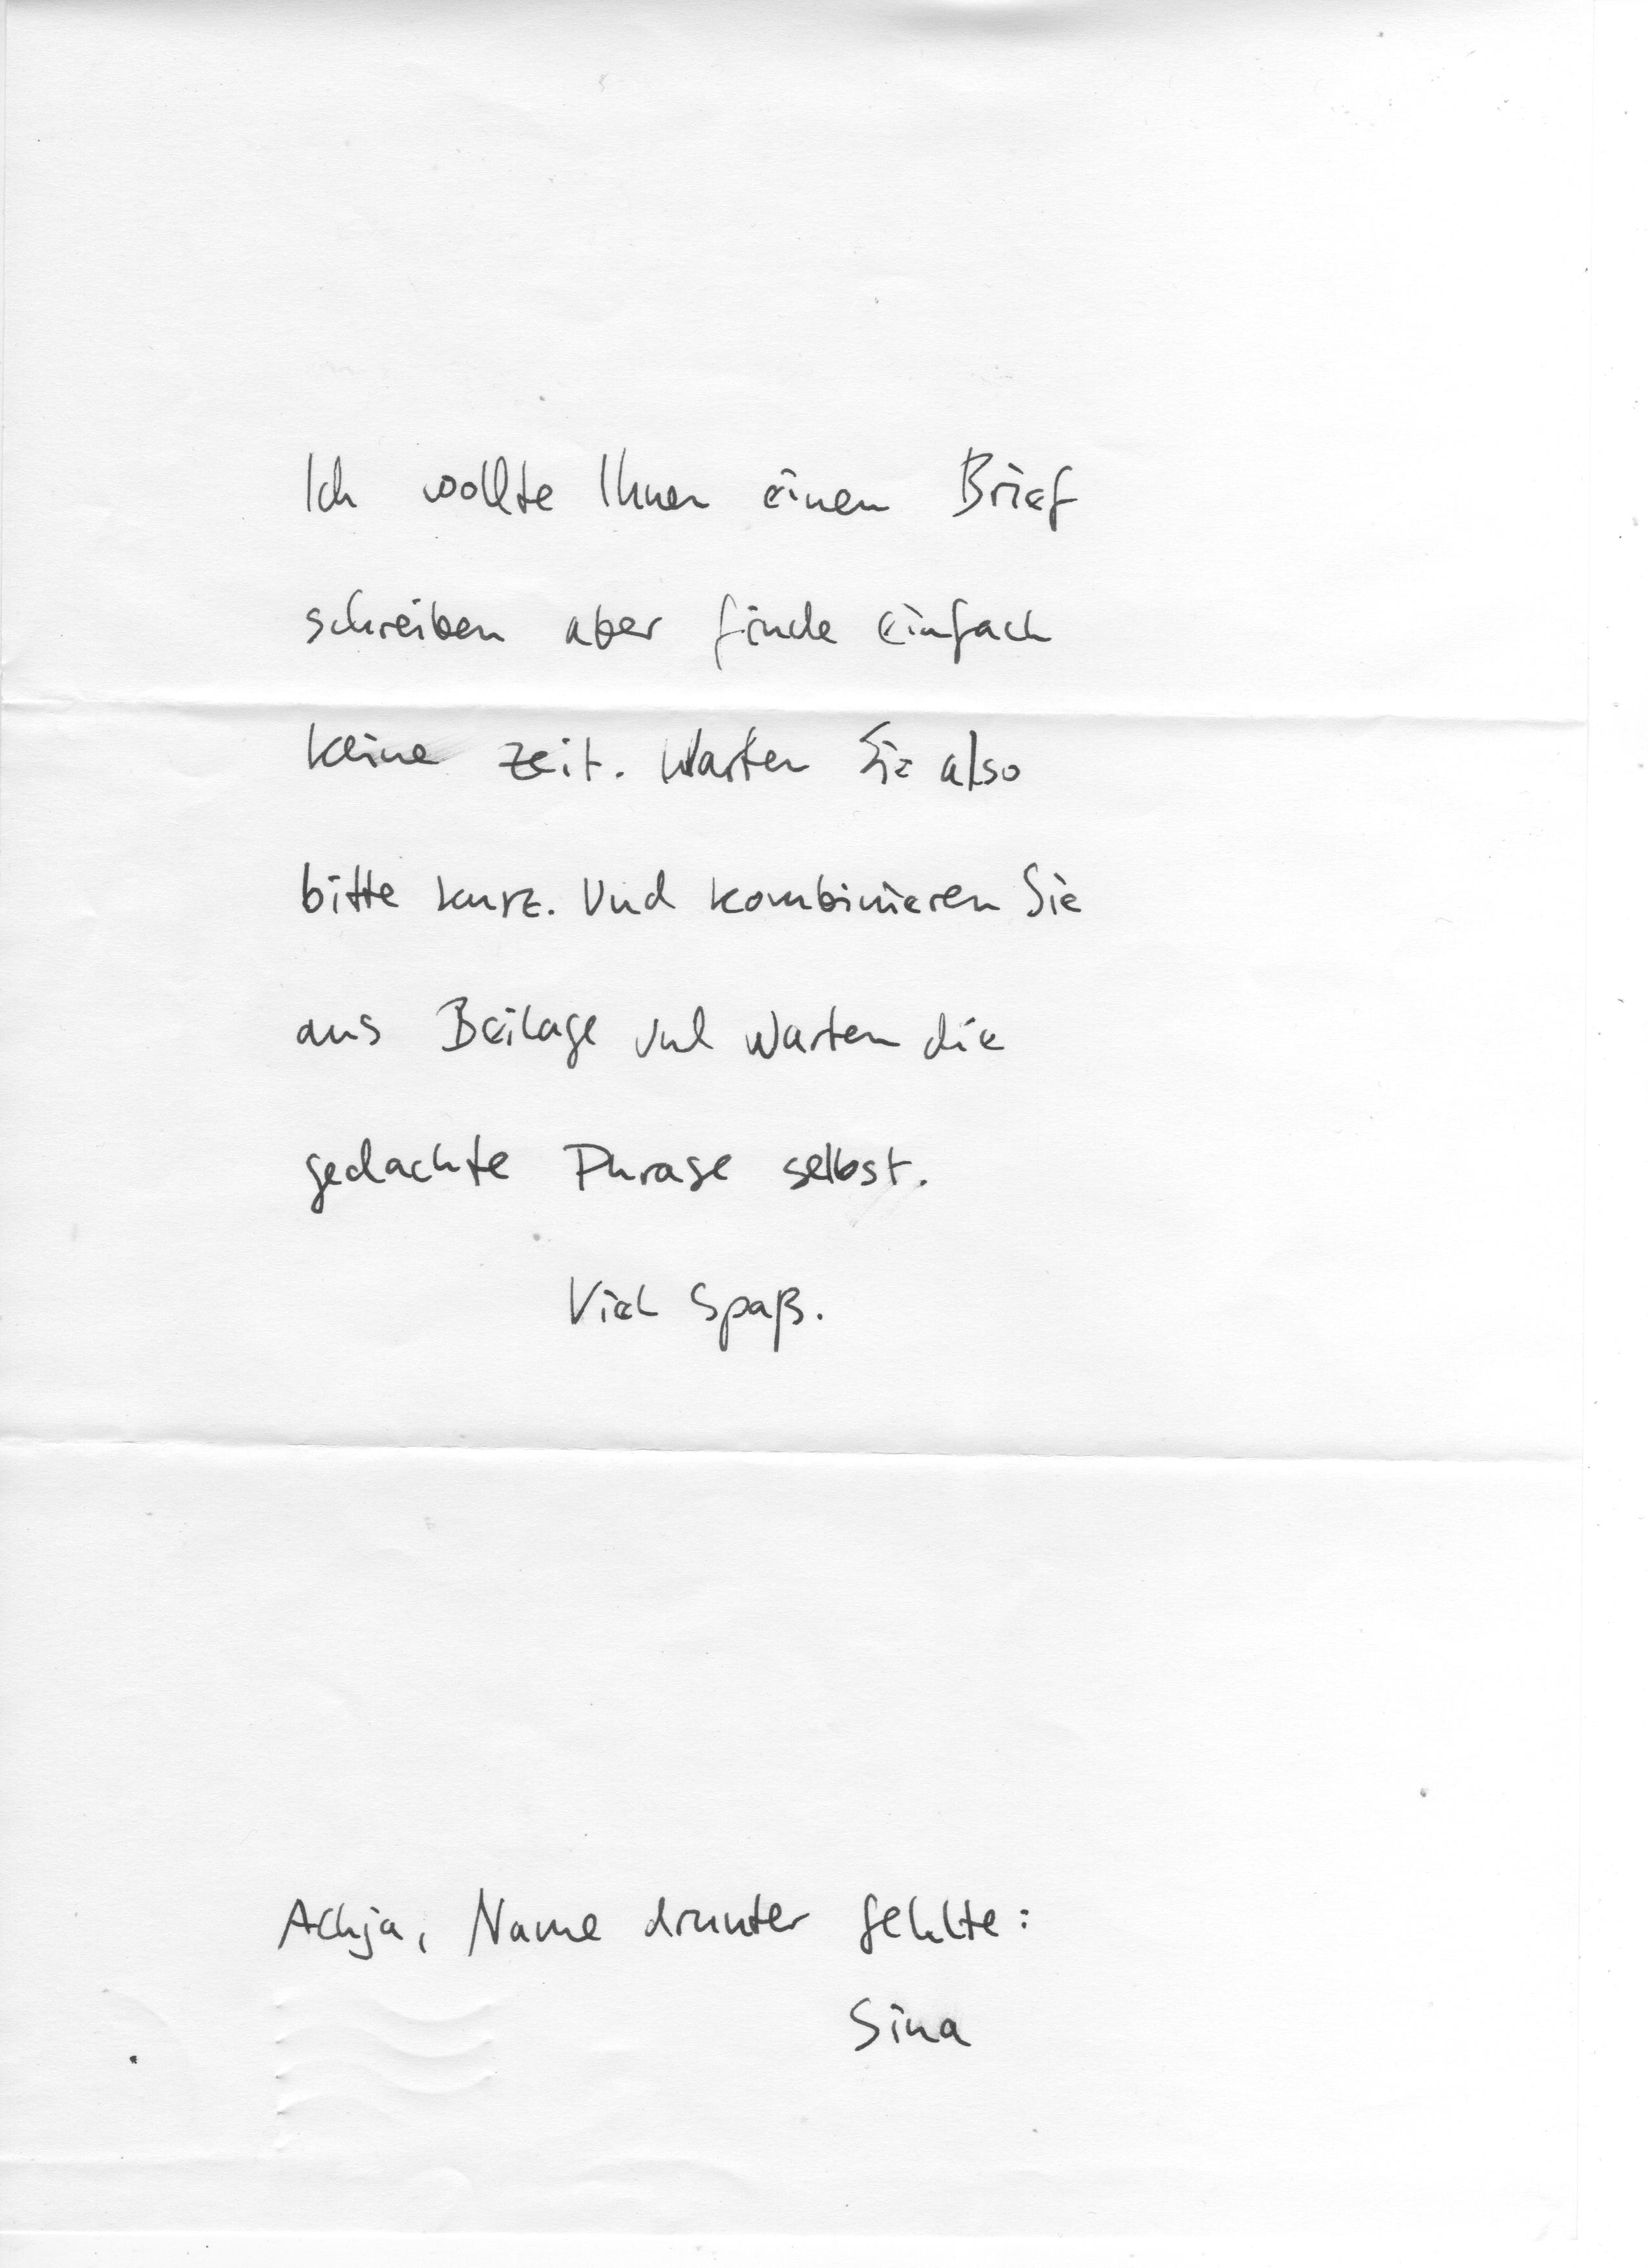 Ich wollte Ihnen einen Brief
schreiben aber finde einfach
keine Zeit. Warten Sie also
bitte kurz. Und kombinieren Sie
aus Beilage und Warten die
gedachte Phrase selbst.
Viel Spaß.
Achja, Name drunter fehlte:
Sina